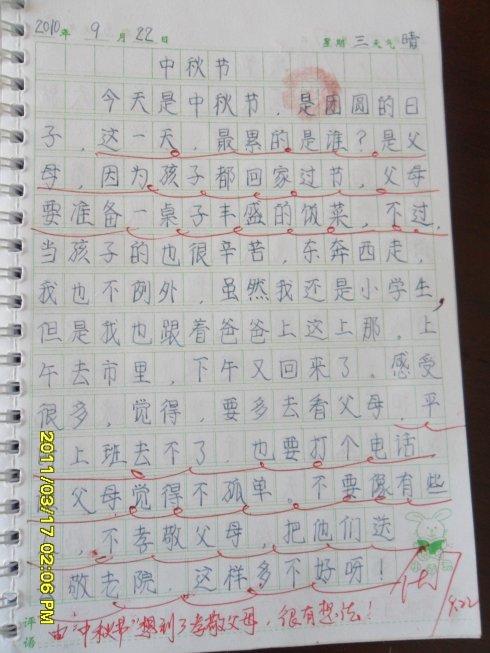 2010年 9月22日 星期三 天气晴
中秋节
今天是中秋节，是团圆的日
子，这一天，最累的是谁？是父
母，因为孩子都回家过节，父母
要准备一桌子丰盛的饭菜，不过，
当孩子的也很辛苦，东奔西走，
我也不例外，虽然我还是小学生，
但是我也跟着爸爸上这上那，上
午去市里，下午又回来了，感受
很多，觉得，要多去看父母，平
上班去不了，也要打个电话，
父母觉得不孤单。不要像有些
，不孝敬父母，把他们送
敬老院，这样多不好呀！
优
9.22
评语
由“中秋节”想到了孝敬父母，很有想法！
2011/03/17 02:06 PM